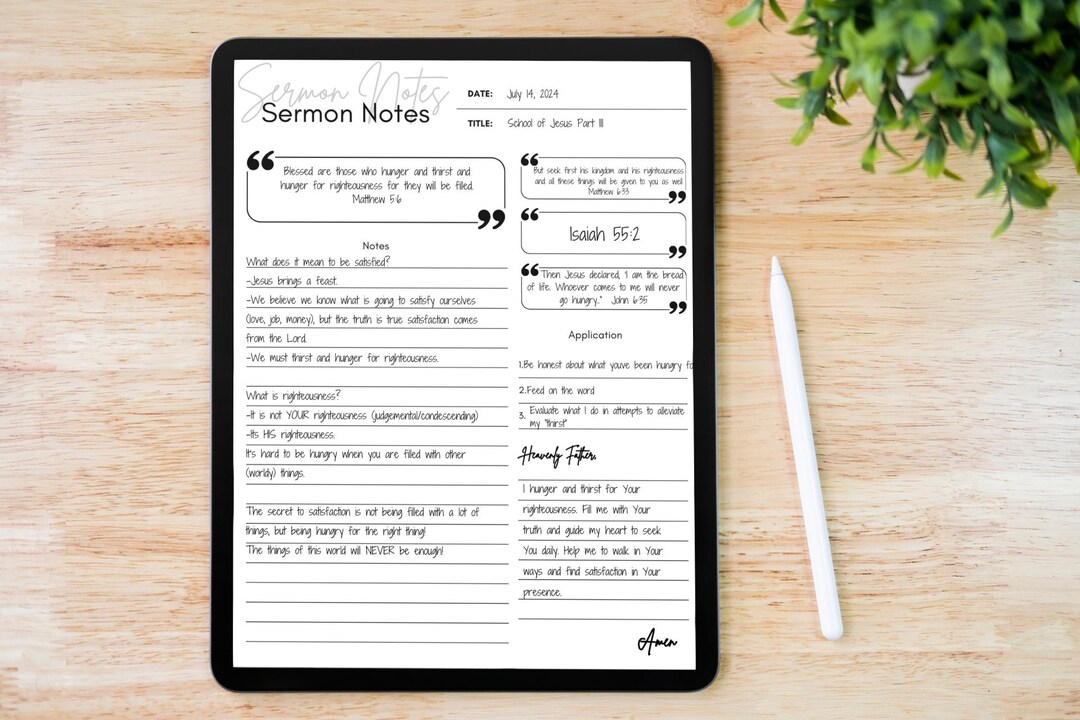 Sermon Notes
Sermon Notes
DATE: July 14, 2024
TITLE: School of Jesus Part III
“
Blessed are those who hunger and thirst and
hunger for righteousness for they will be filled.
Matthew 5:6
”
Notes
What does it mean to be satisfied?
-Jesus brings a feast.
-We believe we know what is going to satisfy ourselves
(love, job, money), but the truth is true satisfaction comes
from the Lord.
-We must thirst and hunger for righteousness.
What is righteousness?
-It is not YOUR righteousness (judgemental/condescending)
-Its HIS righteousness.
It's hard to be hungry when you are filled with other
(worldy) things.
The secret to satisfaction is not being filled with a lot of
things, but being hungry for the right thing!
The things of this world will NEVER be enough!
“
But seek first his kingdom and his righteousness
and all these things will be given to you as well
Matthew 6:33
”
“
Isaiah 55:2
”
“
Then Jesus declared, 'I am the bread
of life. Whoever comes to me will never
go hungry." John 6:35
”
Application
1.Be honest about what youve been hungry fo
2.Feed on the word
3. Evaluate what I do in attempts to alleviate
my "thirst"
Heavenly Father,
I hunger and thirst for Your
righteousness. Fill me with Your
truth and guide my heart to seek
You daily. Help me to walk in Your
ways and find satisfaction in Your
presence.
Amen